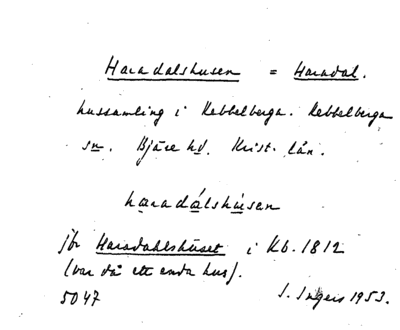 Haradalshusen = Haradal.
hussamling i Rebbelberga. Rebbelberga
sn. Bjäre hd. Krist. län.
haradálshúsen
jfr Haradahlshuset i Kb. 1812
(var då ett enda hus).
5047 S. Ingers 1953.